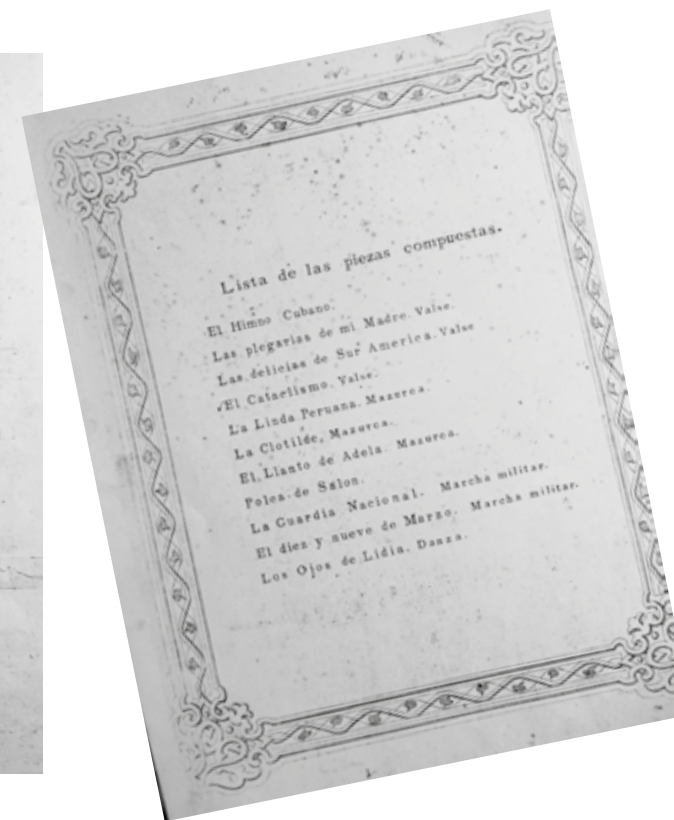 Lista de las piezas compuestas.
El Himno Cubano.
Las plegarias de mi Madre. Valse.
Las delicias de Sur America. Valse
El Cataclismo. Valse.
La Linda Peruana. Mazurca.
La Clotilde, Mazurca.
El Llanto de Adela. Mazurca.
Polca de Salon.
La Guardia Nacional. Marcha militar.
El diez y nueve de Marzo. Marcha militar.
Los Ojos de Lidia. Danza.